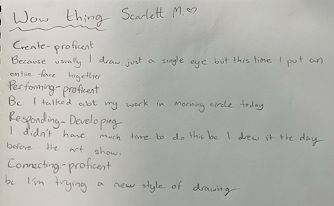 Wow thing Scarlett M.♡
Create-proficent
Because usually I draw just a single eye but this time I put an
entire face together
Performing-proficent
Bc I talked abt my work in morning circle today
Responding-Developing
I didn't have much time to do this bc I drew it the day
before the art show.
Connecting-proficent
bc I'm trying a new style of drawing